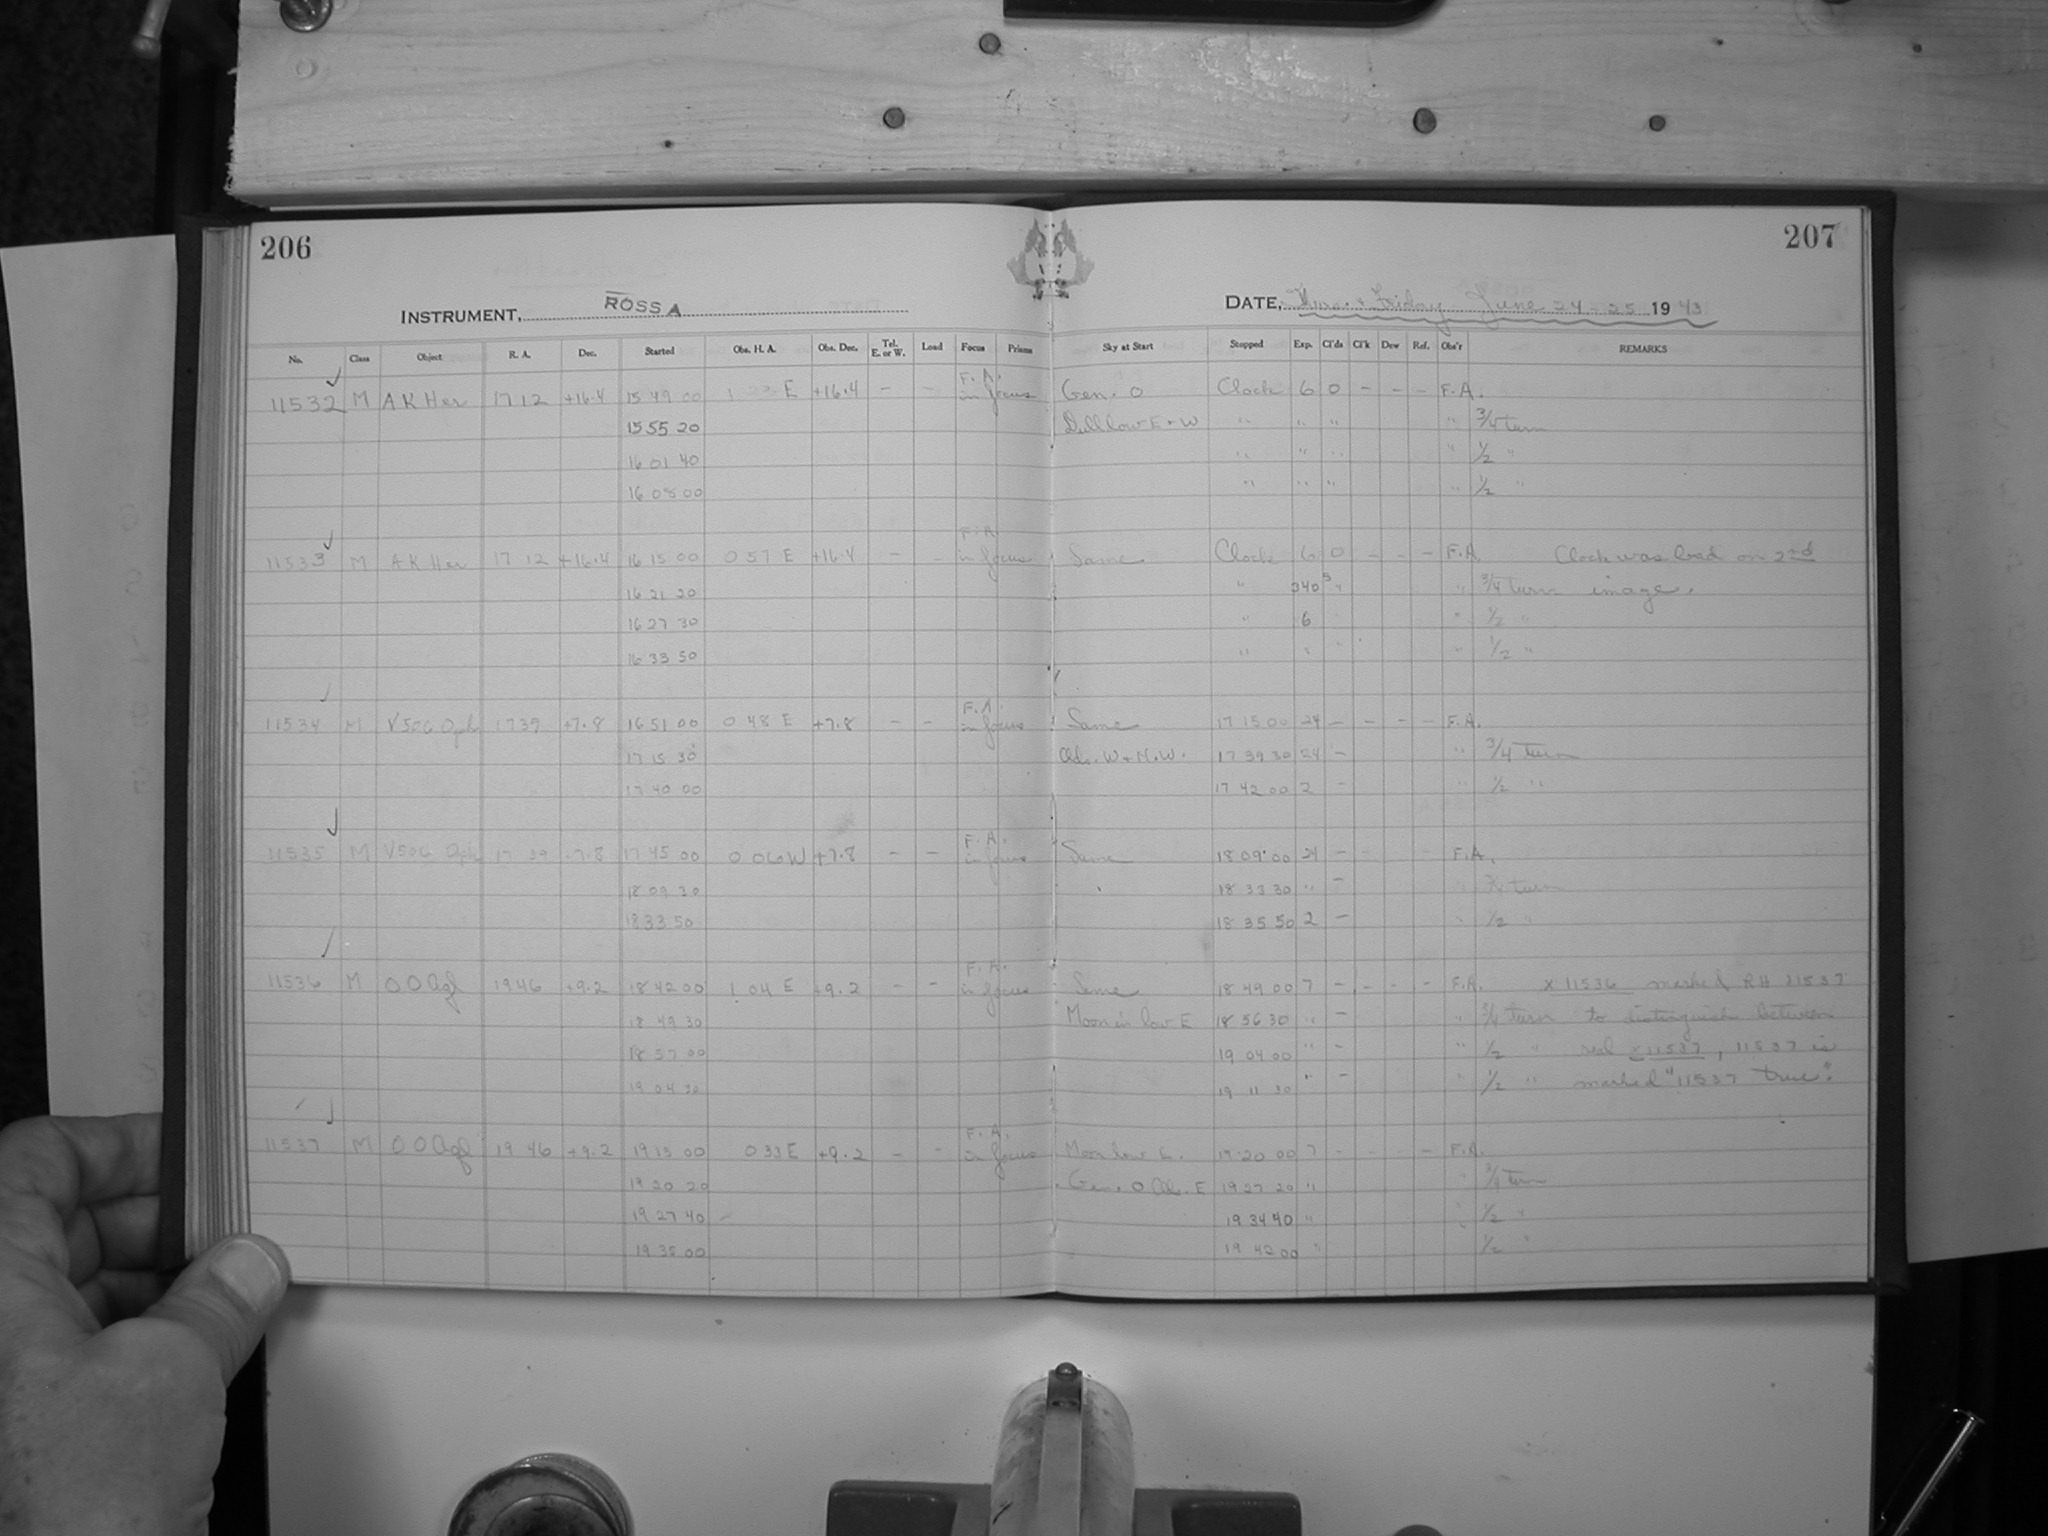 206
207
INSTRUMENT, ROSS A
DATE, Thurs. + Friday June 24 - 25 1943
No. Class Object R. A. Dec. Started Obs. H. A. Obs. Dec. Tel. E. or W. Load Focus Prisms Sky at Start Stopped Exp. Cl'ds Cl'k Dew Ref. Obs'r REMARKS
11532 M A K Her 17 12 +16.4 15 49 00 1 E +16.4 - - F. A. in focus Gen. O Clock 6 0 - - - F.A.
15 55 20 Dull low E + W " " " " 3/4 turn
16 01 40 " " " " 1/2 "
16 08 00 " " " " 1/2 "
11533 M A K Her 17 12 +16.4 16 15 00 0 57 E +16.4 - - F. A. in focus Same Clock 6 0 - - - F.A. Clock was bad on 2nd
16 21 20 " 340 s " " 3/4 turn image.
16 27 30 " 6 " 1/2 "
16 33 50 " " " " 1/2 "
11534 M V506 Oph 17 39 +7.8 16 51 00 0 48 E +7.8 - - F. A. in focus Same 17 15 00 24 - - - - F.A.
17 15 30 Clds. W + N.W. 17 39 30 24 - " 3/4 turn
17 40 00 17 42 00 2 - " 1/2 "
11535 M V506 Oph 17 39 +7.8 17 45 00 0 06 W +7.8 - - F. A. in focus Same 18 09 00 24 - F.A.
18 09 30 18 33 30 " - " 3/4 turn
18 33 50 18 35 50 2 - " 1/2 "
11536 M O O Aql 19 46 +9.2 18 42 00 1 04 E +9.2 - - F. A. in focus Same 18 49 00 7 - - - - F.A. X 11536 marked RH 11537
18 49 30 Moon in low E 18 56 30 " - " 3/4 turn to distinguish between
18 57 00 19 04 00 " - " 1/2 " real x11537, 11537 is
19 04 30 19 11 30 " - " 1/2 " marked "11537 true".
11537 M O O Aql 19 46 +9.2 19 13 00 0 33 E +9.2 - - F. A. in focus Moon low E. 19 20 00 7 - - - - F.A.
19 20 20 Gen. O Clds. E 19 27 20 " " 3/4 turn
19 27 40 19 34 40 " " 1/2 "
19 35 00 19 42 00 " 1/2 "